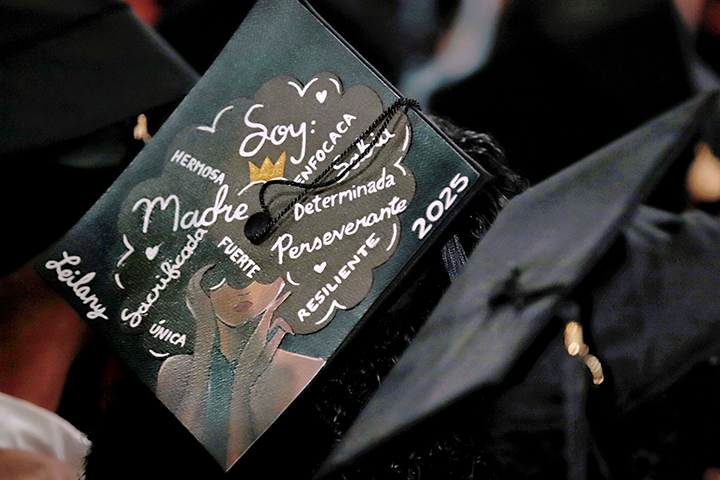 Soy:
HERMOSA
ENFOCACA
Sabia
Madre
Determinada
2025
Sacrificada
FUERTE
Perseverante
Leilany
ÚNICA
RESILIENTE